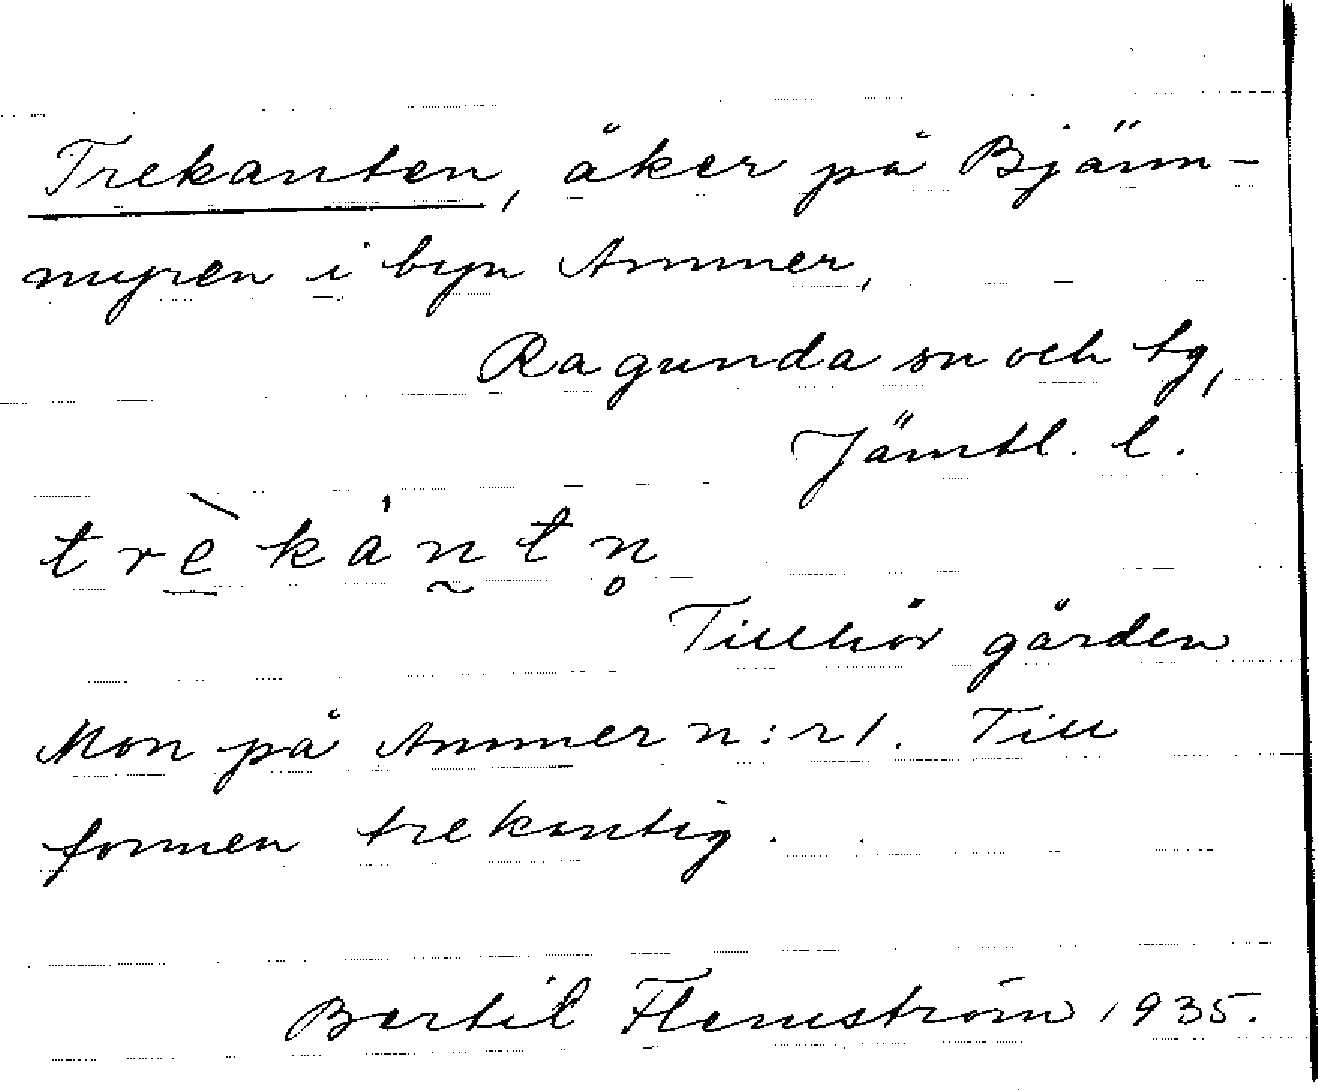 Trekanten, åker på Björn-
myren i byn Ammer,
Ragunda sn och tg,
Jämtl. l.
trè̱kán̰tn̥
Tillhör gården
Mon på Ammer n:r 1. Till
formen trekantig.
Bertil Flemström 1935.